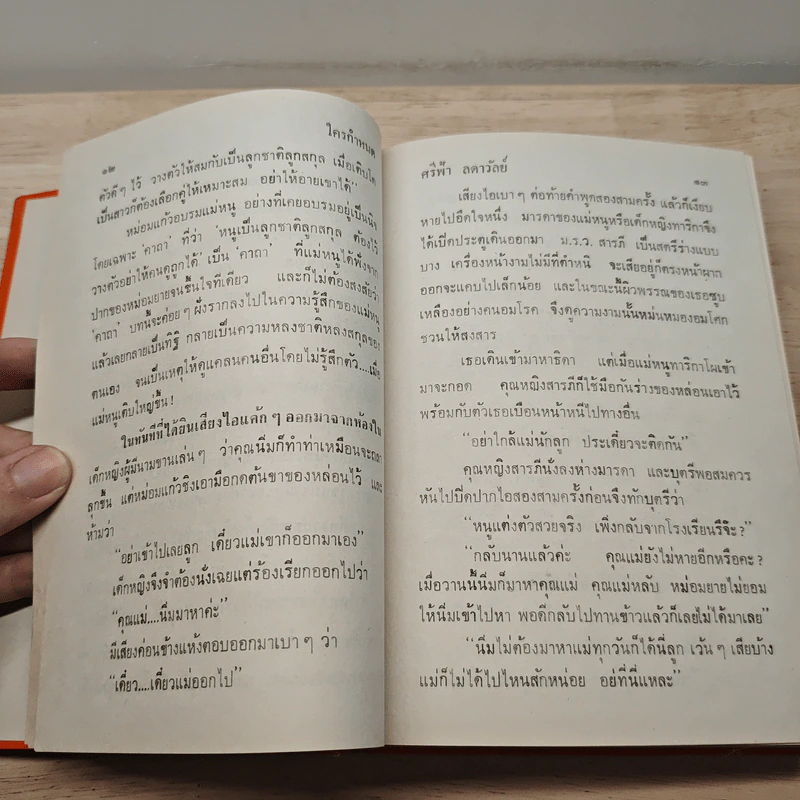 ๑๒
ใครกำหนด
ตัวดีๆ ไว้ วางตัวให้สมกับเป็นลูกชาติลูกสกุล เมื่อเติบโต
เป็นสาวก็ต้องเลือกคู่ให้เหมาะสม อย่าให้อายเขาได้”
หม่อมแก้วอบรมแม่หนู อย่างที่เคยอบรมอยู่เป็นนิจ
โดยเฉพาะ ‘คาถา’ ที่ว่า ‘หนูเป็นลูกชาติลูกสกุล ต้องไว้
วางตัวอย่าให้คนดูถูกได้’ เป็น ‘คาถา’ ที่แม่หนูได้ฟังจาก
ปากของหม่อมยายจนชินใจทีเดียว และก็ไม่ต้องสงสัยว่า
‘คาถา’ บทนี้จะค่อยๆ ฝังรากลงไปในความรู้สึกของแม่หนู
แล้วเลยกลายเป็นทิฐิ กลายเป็นความหลงชาติหลงสกุลของ
ตนเอง จนเป็นเหตุให้ดูแคลนคนอื่นโดยไม่รู้สึกตัว....เมื่อ
แม่หนูเติบใหญ่ขึ้น!
ในทันทีที่ได้ยินเสียงไอแค้กๆ ออกมาจากห้องใน
เด็กหญิงผู้มีนามขานเล่นๆ ว่าคุณนิ่มก็ทำท่าเหมือนจะถลา
ลุกขึ้น แต่หม่อมแก้วชิงเอามือกดต้นขาของหล่อนไว้ และ
ห้ามว่า
“อย่าเข้าไปเลยลูก เดี๋ยวแม่เขาก็ออกมาเอง”
เด็กหญิงจึงจำต้องนั่งเฉยแต่ร้องเรียกออกไปว่า
“คุณแม่....นิ่มมาหาค่ะ”
มีเสียงค่อนข้างแห้งตอบออกมาเบาๆ ว่า
“เดี๋ยว....เดี๋ยวแม่ออกไป”
ศรีฟ้า ลดาวัลย์
๑๓
เสียงไอเบาๆ ต่อท้ายคำพูดสองสามครั้ง แล้วก็เงียบ
หายไปอึดใจหนึ่ง มารดาของแม่หนูหรือเด็กหญิงทาริกาจึง
ได้เปิดประตูเดินออกมา ม.ร.ว. สารภี เป็นสตรีร่างแบบ
บาง เครื่องหน้างามไม่มีที่ตำหนิ จะเสียอยู่ก็ตรงหน้าผาก
ออกจะแคบไปเล็กน้อย และในขณะนี้ผิวพรรณของเธอซูบ
เหลืองอย่างคนอมโรค จึงดูความงามนั้นหม่นหมองอมโศก
ชวนให้สงสาร
เธอเดินเข้ามาหาธิดา แต่เมื่อแม่หนูทาริกาโผเข้า
มาจะกอด คุณหญิงสารภีก็ใช้มือกันร่างของหล่อนเอาไว้
พร้อมกับตัวเธอเบือนหน้าหนีไปทางอื่น
“อย่าใกล้แม่นักลูก ประเดี๋ยวจะติดกัน”
คุณหญิงสารภีนั่งลงห่างมารดา และบุตรีพอสมควร
หันไปปิดปากไอสองสามครั้งก่อนจึงทักบุตรีว่า
“หนูแต่งตัวสวยจริง เพิ่งกลับจากโรงเรียนรึจ๊ะ?”
“กลับนานแล้วค่ะ คุณแม่ยังไม่หายอีกหรือคะ?
เมื่อวานนี้นิ่มก็มาหาคุณแม่ คุณแม่หลับ หม่อมยายไม่ยอม
ให้นิ่มเข้าไปหา พอดีกลับไปทานข้าวแล้วก็เลยไม่ได้มาเลย”
“นิ่มไม่ต้องมาหาแม่ทุกวันก็ได้นี่ลูก เว้นๆ เสียบ้าง
แม่ก็ไม่ได้ไปไหนสักหน่อย อยู่ที่นี่แหละ”